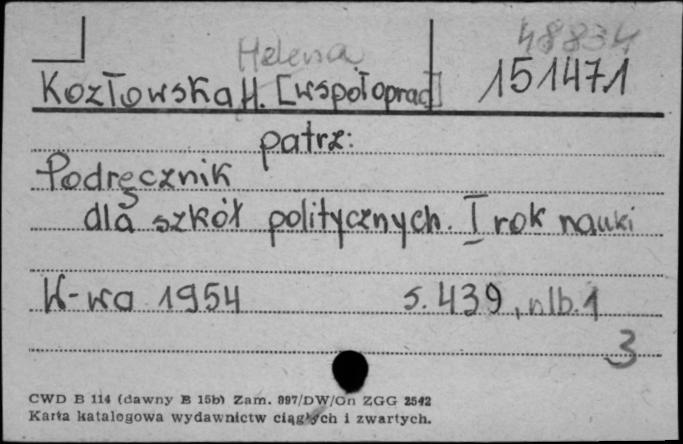 Helena 48834
Kozłowska H. [współoprac] 151471
patrz:
Podręcznik
dla szkół politycznych. I rok nauki
W-wa 1954 s. 439, nlb. 1
3
CWD B 114 (dawny B 15b) Zam. 897/DW/On ZGG 2542
Karta katalogowa wydawnictw ciągłych i zwartych.